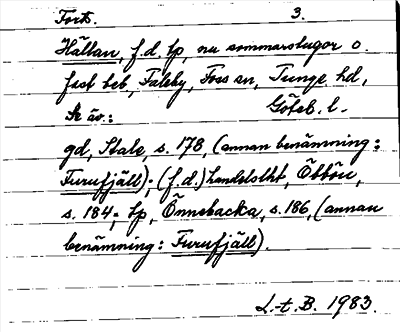 Forts. 3.
Hällan, f.d. tp, nu sommarstugor o.
fast beb, Foss sn, Tunge hd,
Göteb. l.
Se äv.:
gd, Stale, s. 178, (annan benämning:
Furufjäll); (f.d.) handelslht, Öbbön,
s. 184; tp, Önnebacka, s. 186, (annan
benämning: Furufjäll).
L.-t. B. 1983.